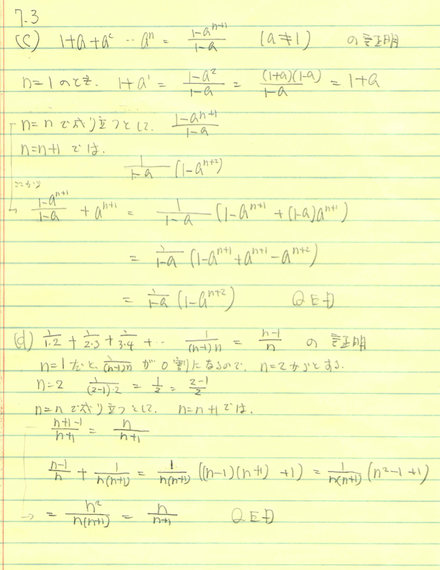 7.3
(c) 1+a+a² … aⁿ = (1-aⁿ⁺¹)/(1-a) (a≠1) の証明
n=1のとき. 1+a¹ = (1-a²)/(1-a) = (1+a)(1-a)/(1-a) = 1+a
n=nで成り立つとして. (1-aⁿ⁺¹)/(1-a)
n=n+1では.
1/(1-a) (1-aⁿ⁺²)
(1-aⁿ⁺¹)/(1-a) + aⁿ⁺¹ = 1/(1-a) (1-aⁿ⁺¹+(1-a)aⁿ⁺¹)
= 1/(1-a) (1-aⁿ⁺¹+aⁿ⁺¹-aⁿ⁺²)
= 1/(1-a) (1-aⁿ⁺²) QED
(d) 1/(1·2) + 1/(2·3) + 1/(3·4) + … 1/((n-1)n) = (n-1)/n の証明
n=1だと 1/((n-1)n) が0割になるので. n=2からとする.
n=2 1/((2-1)·2) = 1/2 = (2-1)/2
n=nで成り立つとして. n=n+1では.
(n+1-1)/(n+1) = n/(n+1)
(n-1)/n + 1/(n(n+1)) = 1/(n(n+1)) ((n-1)(n+1)+1) = 1/(n(n+1)) (n²-1+1)
→ = n²/(n(n+1)) = n/(n+1) QED